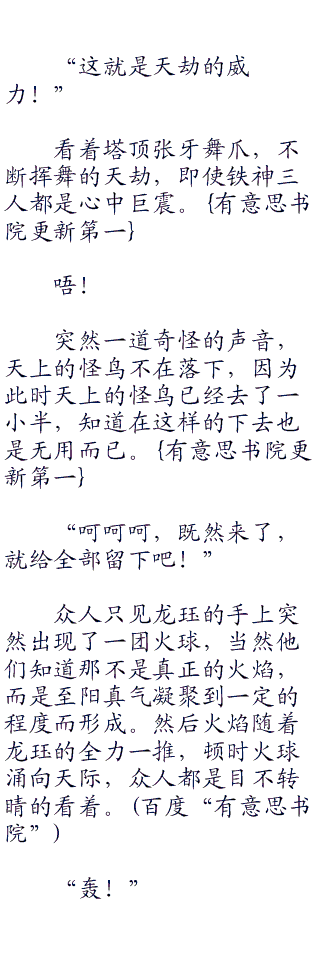 “这就是天劫的威
力！”
看着塔顶张牙舞爪，不
断挥舞的天劫，即使铁神三
人都是心中巨震。{有意思书
院更新第一}
唔！
突然一道奇怪的声音，
天上的怪鸟不在落下，因为
此时天上的怪鸟已经去了一
小半，知道在这样的下去也
是无用而已。{有意思书院更
新第一}
“呵呵呵，既然来了，
就给全部留下吧！”
众人只见龙珏的手上突
然出现了一团火球，当然他
们知道那不是真正的火焰，
而是至阳真气凝聚到一定的
程度而形成。然后火焰随着
龙珏的全力一推，顿时火球
涌向天际，众人都是目不转
睛的看着。(百度“有意思书
院”)
“轰！”